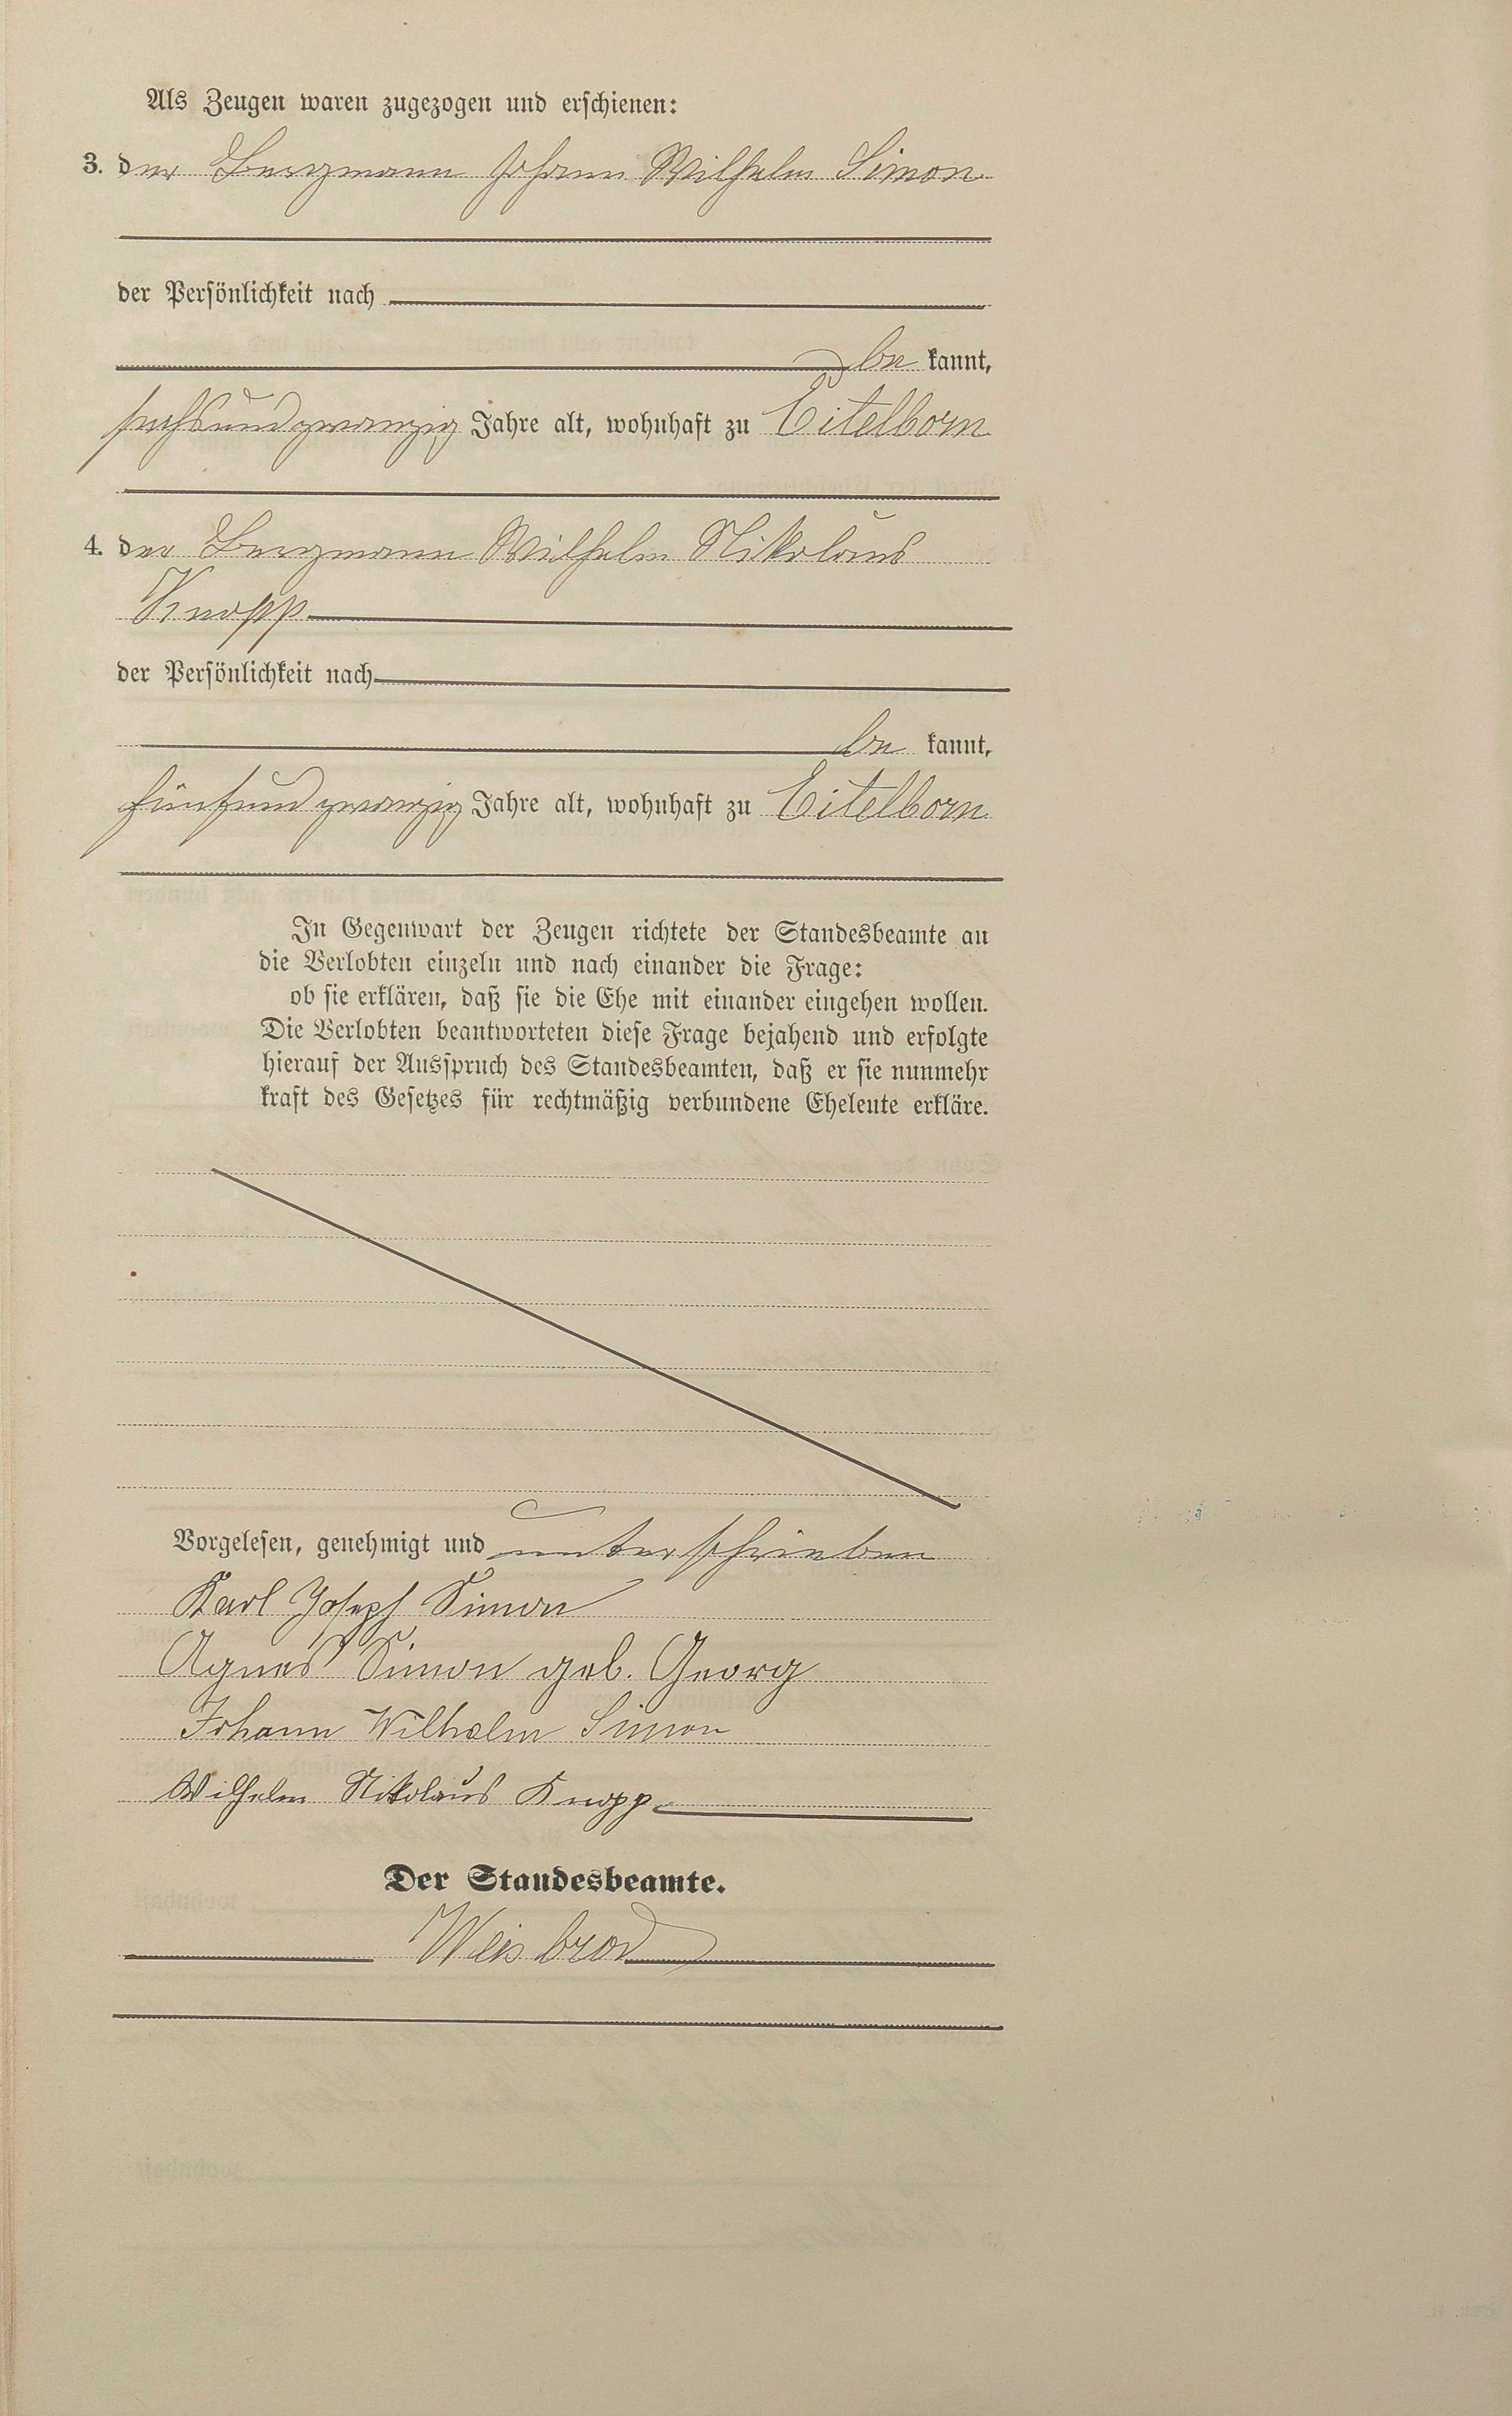 Als Zeugen waren zugezogen und erschienen:
3. der Bergmann Johann Wilhelm Simon
der Persönlichkeit nach
be kannt,
sechsundzwanzig Jahre alt, wohnhaft zu Eitelborn
4. der Bergmann Wilhelm Nikolaus
Knopp
der Persönlichkeit nach
be kannt,
fünfundzwanzig Jahre alt, wohnhaft zu Eitelborn
In Gegenwart der Zeugen richtete der Standesbeamte an
die Verlobten einzeln und nach einander die Frage:
ob sie erklären, daß sie die Ehe mit einander eingehen wollen.
Die Verlobten beantworteten diese Frage bejahend und erfolgte
hierauf der Ausspruch des Standesbeamten, daß er sie nunmehr
kraft des Gesetzes für rechtmäßig verbundene Eheleute erkläre.
Vorgelesen, genehmigt und unterschrieben
Karl Joseph Simon
Agnes Simon geb. Georg
Johann Wilhelm Simon
Wilhelm Nikolaus Knopp
Der Standesbeamte.
Weisbrod